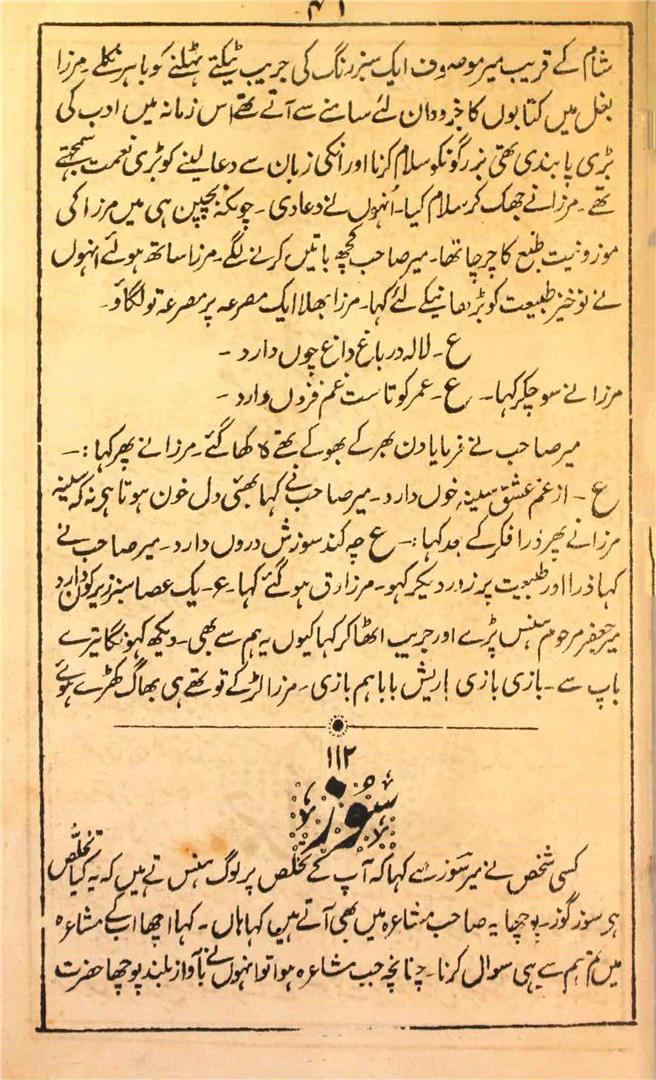 ۴۱
شام کے قریب میر موصوف ایک سبز رنگ کی جریب ٹیکتے ٹہلنے کو باہر نکلے۔ مرزا
بغل میں کتابوں کا جزودان لئے سامنے سے آتے تھے اس زمانہ میں ادب کی
بڑی پابندی تھی بزرگونکو سلام کرنا اور انکی زبان سے دعا لینے کو بڑی نعمت سمجھتے
تھے۔ مرزا نے جھک کر سلام کیا۔ اُنہوں نے دعا دی۔ چونکہ بچپن ہی میں مرزا کی
موزونیت طبع کا چرچا تھا۔ میر صاحب کچھ باتیں کرنے لگے۔ مرزا ساتھ ہولئے انہوں
نے نوخیز طبیعت کو بڑھانیکے لئے کہا۔ مرزا بھلا ایک مصرعہ پر مصرعہ تو لگاؤ۔
ع۔ لالہ در باغ داغ چوں دارد ۔
مرزا نے سوچکر کہا۔ ع۔ عمر کوتاست غم فزوں دارد ۔
میر صاحب نے فرمایا دن بھر کے بھوکے تھے کھا گئے۔ مرزا نے پھر کہا :۔
ع۔ از غم عشق سینہ خوں دارد۔ میر صاحب نے کہا بھئی دل خون ہوتا ہی نہ کہ سینہ
مرزا نے پھر ذرا فکر کے بعد کہا :۔ ع چہ کند سوزش دروں دارد۔ میر صاحب نے
کہا ذرا اور طبیعت پر زور دیکر کہو۔ مرزا دق ہو گئے کہا۔ ع۔ یک عصا سبز زیر کون دارد
میر جعفر مرحوم ہنس پڑے اور جریب اٹھا کر کہا کیوں یہ ہم سے بھی۔ دیکھ کہونگا تیرے
باپ سے۔ بازی بازی باریش بابا ہم بازی۔ مرزا لڑکے تو تھے ہی بھاگ کھڑے ہوئے
۱۱۲
سوز
کسی شخص نے میر سوز سے کہا کہ آپ کے تخلص پر لوگ ہنستے ہیں کہ یہ کیا تخلص
ہی سوز گوز۔ پوچھا یہ صاحب مشاعرہ میں بھی آتے ہیں کہا ہاں۔ کہا اچھا ابکے مشاعرہ
میں تم ہم سے یہی سوال کرنا۔ چنانچہ جب مشاعرہ ہوا تو انہوں نے بآواز بلند پوچھا حضرت